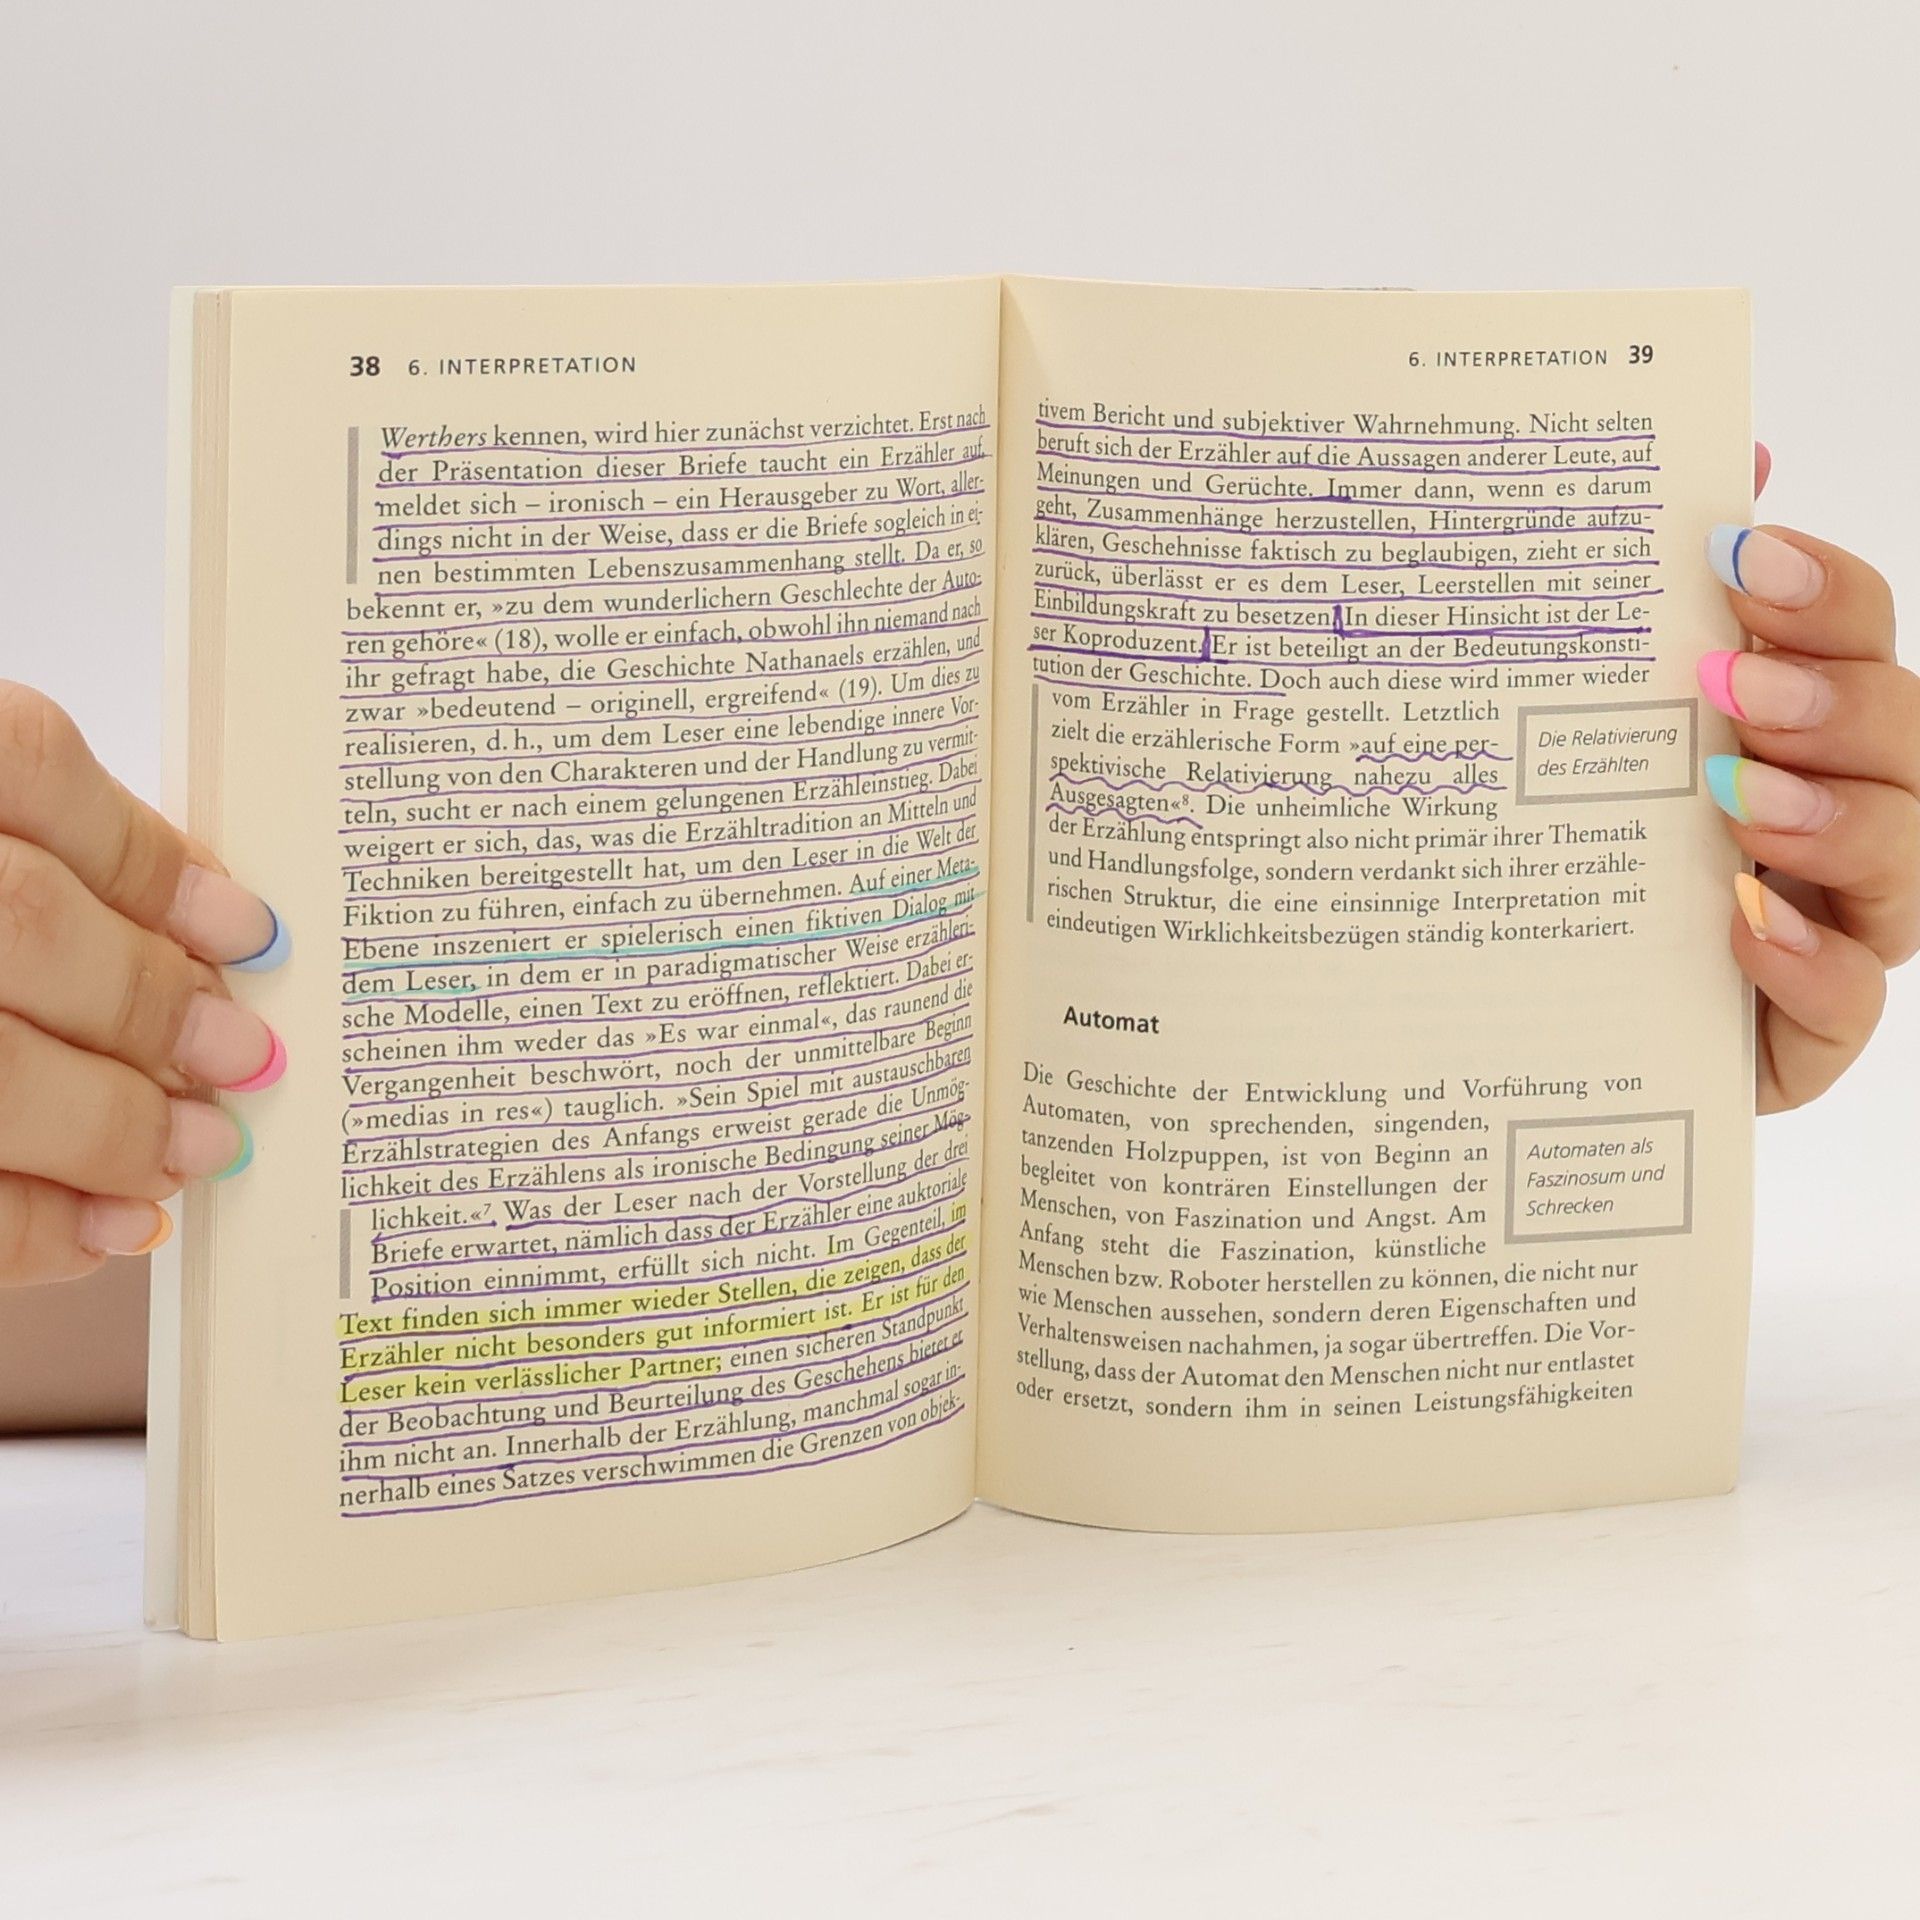 38 6. INTERPRETATION
Werthers kennen, wird hier zunächst verzichtet. Erst nach
der Präsentation dieser Briefe taucht ein Erzähler auf,
meldet sich – ironisch – ein Herausgeber zu Wort, aller-
dings nicht in der Weise, dass er die Briefe sogleich in ei-
nen bestimmten Lebenszusammenhang stellt. Da er, so
bekennt er, »zu dem wunderlichern Geschlechte der Auto-
ren gehöre« (18), wolle er einfach, obwohl ihn niemand nach
ihr gefragt habe, die Geschichte Nathanaels erzählen, und
zwar »bedeutend – originell, ergreifend« (19). Um dies zu
realisieren, d. h., um dem Leser eine lebendige innere Vor-
stellung von den Charakteren und der Handlung zu vermit-
teln, sucht er nach einem gelungenen Erzähleinstieg. Dabei
weigert er sich, das, was die Erzähltradition an Mitteln und
Techniken bereitgestellt hat, um den Leser in die Welt der
Fiktion zu führen, einfach zu übernehmen. Auf einer Meta-
Ebene inszeniert er spielerisch einen fiktiven Dialog mit
dem Leser, in dem er in paradigmatischer Weise erzähleri-
sche Modelle, einen Text zu eröffnen, reflektiert. Dabei er-
scheinen ihm weder das »Es war einmal«, das raunend die
Vergangenheit beschwört, noch der unmittelbare Beginn
(»medias in res«) tauglich. »Sein Spiel mit austauschbaren
Erzählstrategien des Anfangs erweist gerade die Unmög-
lichkeit des Erzählens als ironische Bedingung seiner Mög-
lichkeit.«7 Was der Leser nach der Vorstellung der drei
Briefe erwartet, nämlich dass der Erzähler eine auktoriale
Position einnimmt, erfüllt sich nicht. Im Gegenteil, im
Text finden sich immer wieder Stellen, die zeigen, dass der
Erzähler nicht besonders gut informiert ist. Er ist für den
Leser kein verlässlicher Partner; einen sicheren Standpunkt
der Beobachtung und Beurteilung des Geschehens bietet er
ihm nicht an. Innerhalb der Erzählung, manchmal sogar in-
nerhalb eines Satzes verschwimmen die Grenzen von objek-
6. INTERPRETATION 39
tivem Bericht und subjektiver Wahrnehmung. Nicht selten
beruft sich der Erzähler auf die Aussagen anderer Leute, auf
Meinungen und Gerüchte. Immer dann, wenn es darum
geht, Zusammenhänge herzustellen, Hintergründe aufzu-
klären, Geschehnisse faktisch zu beglaubigen, zieht er sich
zurück, überlässt er es dem Leser, Leerstellen mit seiner
Einbildungskraft zu besetzen. In dieser Hinsicht ist der Le-
ser Koproduzent. Er ist beteiligt an der Bedeutungskonsti-
tution der Geschichte. Doch auch diese wird immer wieder
vom Erzähler in Frage gestellt. Letztlich
zielt die erzählerische Form »auf eine per-
spektivische Relativierung nahezu alles
Ausgesagten«8. Die unheimliche Wirkung
der Erzählung entspringt also nicht primär ihrer Thematik
und Handlungsfolge, sondern verdankt sich ihrer erzähle-
rischen Struktur, die eine einsinnige Interpretation mit
eindeutigen Wirklichkeitsbezügen ständig konterkariert.
Die Relativierung
des Erzählten
Automat
Die Geschichte der Entwicklung und Vorführung von
Automaten, von sprechenden, singenden,
tanzenden Holzpuppen, ist von Beginn an
begleitet von konträren Einstellungen der
Menschen, von Faszination und Angst. Am
Anfang steht die Faszination, künstliche
Menschen bzw. Roboter herstellen zu können, die nicht nur
wie Menschen aussehen, sondern deren Eigenschaften und
Verhaltensweisen nachahmen, ja sogar übertreffen. Die Vor-
stellung, dass der Automat den Menschen nicht nur entlastet
oder ersetzt, sondern ihm in seinen Leistungsfähigkeiten
Automaten als
Faszinosum und
Schrecken